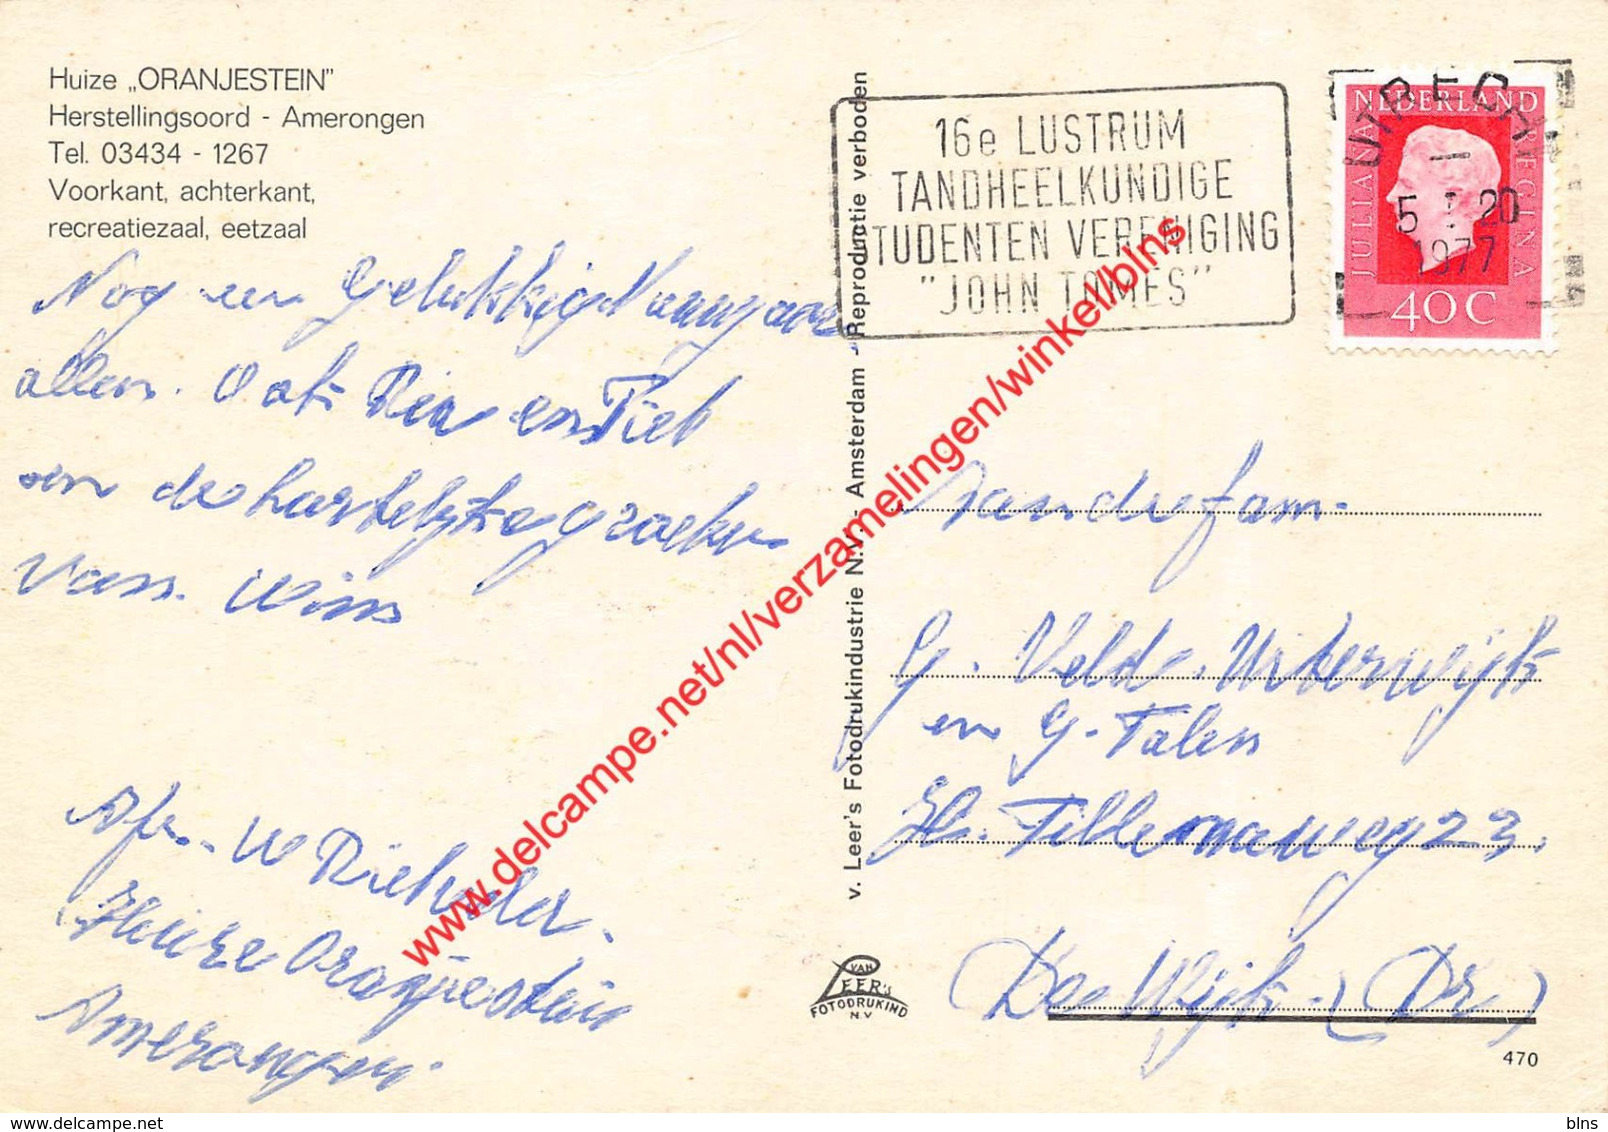 Huize „ORANJESTEIN”
Herstellingsoord - Amerongen
Tel. 03434 - 1267
Voorkant, achterkant,
recreatiezaal, eetzaal
Nog een Gelukkig
allen. Ook en Piet
en de hartelijke
van Wim
Afz. W
Huize Oranjestein
Amerongen.
v. Leer's Fotodrukindustrie N.V. - Amsterdam - Reproductie verboden
16e LUSTRUM
TANDHEELKUNDIGE
STUDENTEN VERENIGING
"JOHN TOMES"
UTRECHT
5 I 20
1977
NEDERLAND
JULIANA REGINA
40 C
Aan de fam.
G. Velde. Uiterwijk
en G. Talen
23.
De Wijk. (Dr)
VAN
LEER's
FOTODRUKIND
N.V
470
www.delcampe.net/nl/verzamelingen/winkel/blns
www.delcampe.net
blns